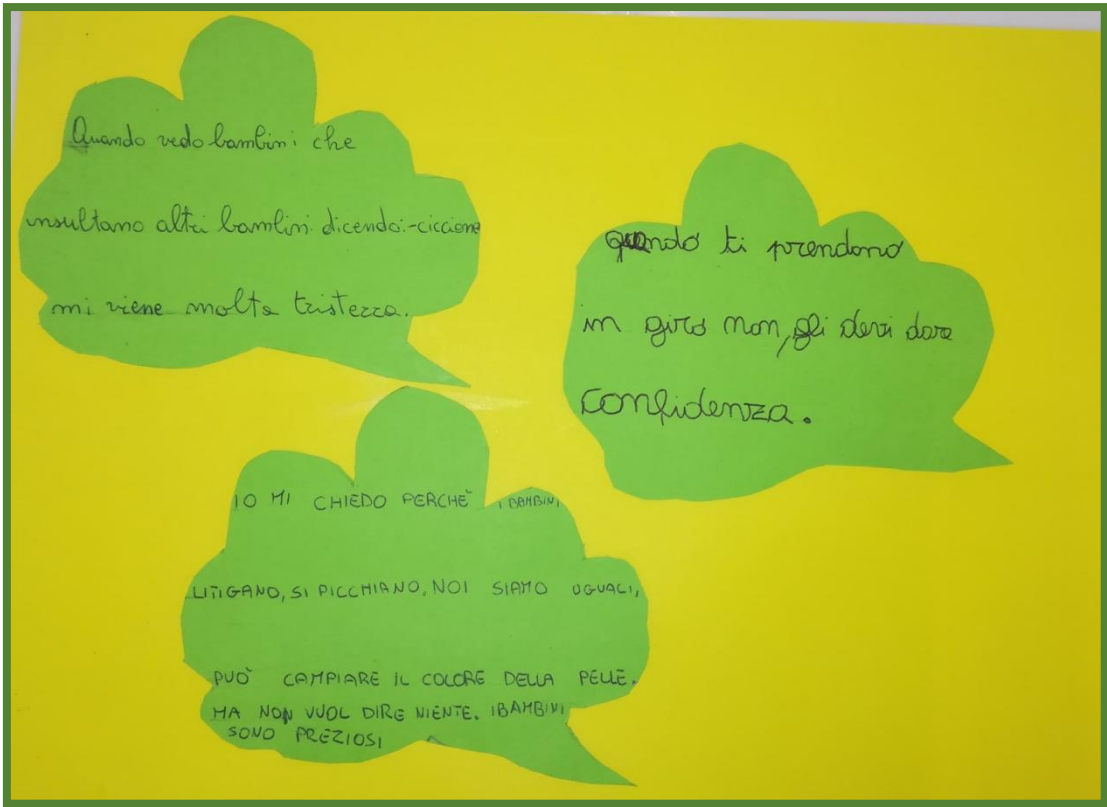 Quando vedo bambini che
insultano altri bambini dicendo:-ciccione
mi viene molta tristezza.
quando ti prendono
in giro non, gli devi dare
confidenza.
IO MI CHIEDO PERCHÈ I BAMBINI
LITIGANO, SI PICCHIANO, NOI SIAMO UGUALI,
PUÒ CAMPIARE IL COLORE DELLA PELLE.
MA NON VUOL DIRE NIENTE. I BAMBINI
SONO PREZIOSI